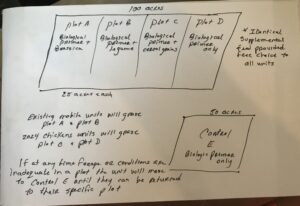 100 acres
Plot A
Biological
primer +
Brassica
Plot B
Biological
primer +
legume
Plot C
Biological
primer +
cereal grains
Plot D
Biological
primer
only
25 acres each
* Identical
Supplemental
feed provided
free choice to
all units
Existing mobile units will graze
plot A & plot B
chickens units will graze
plot C & plot D
If at any time forage or conditions are
inadequate in a plot the unit will move
to Control E until they can be returned
to there specific plot
50 acres
Control
E
Biologic primer
only